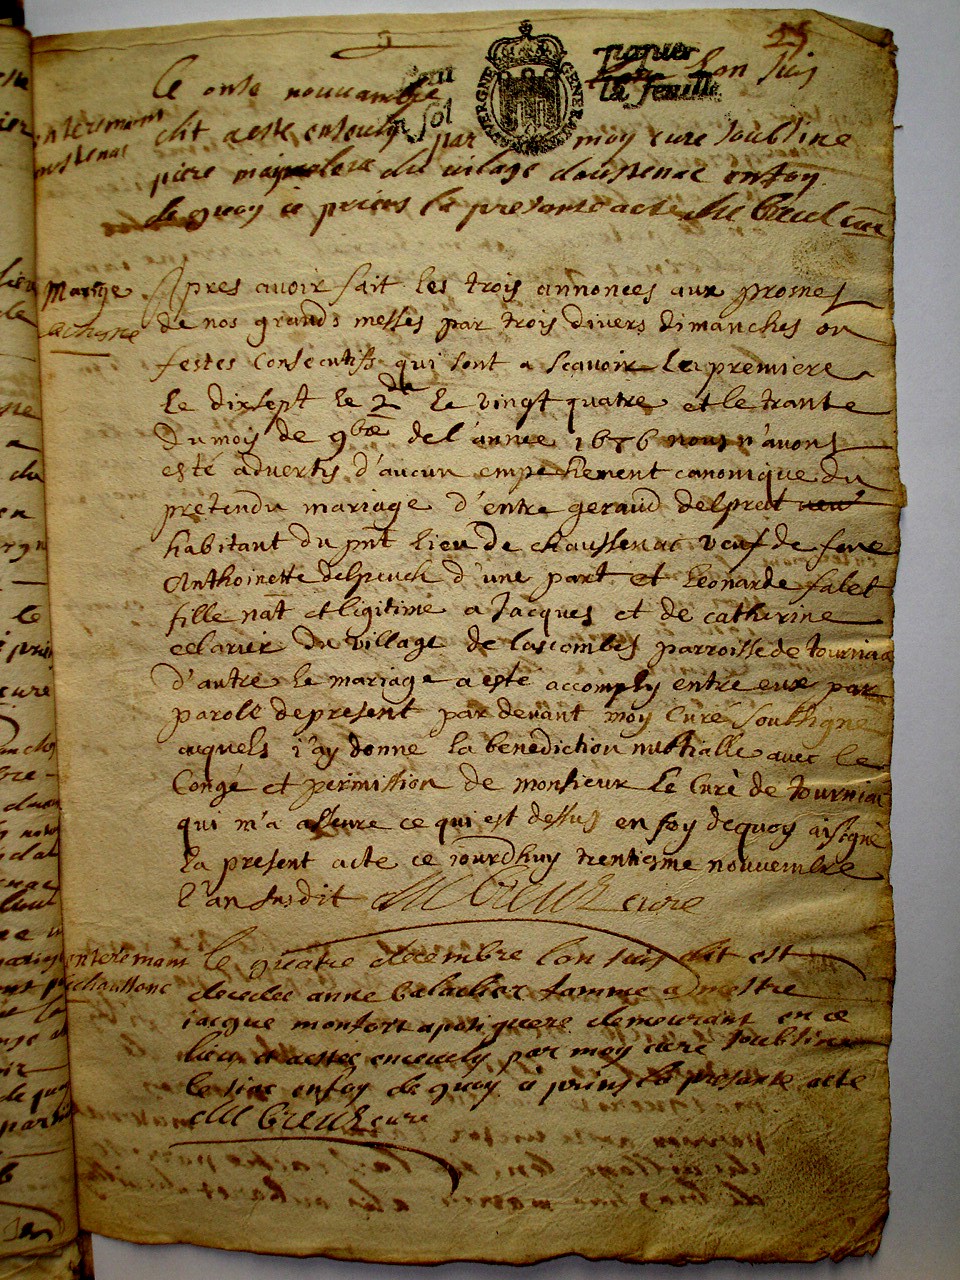 25
papier
la feuille
un
sol
AUVERGNE GENERALITE
Le onse nouvambre Lan Suis
enteremant
dit a este ensevely par moy cure soubsine
piere du vilage daussenac en foy
de quoy ie priens la presante acte cure
Mariage
Apres avoir fait les trois annonces aux prosnes
de nos grands messes par trois divers dimanches ou
festes Consecutifs qui sont a scavoir le premiere
le dixsept le 2de le vingt quatre et le trante
du mois de 9bre de l'annee 1676 nous n'avons
esté advertis d'aucun empechement canonique du
pretendu mariage d'entre geraud delprat veuf
habitant du pnt lieu de chaussenac veuf de feue
Anthoinette delpeuch d'une part et Leonarde falet
fille nat et ligitime a Jacques et de catherine
celarier du village de lascombes parroisse de tourniac
d'autre le mariage a esté accomply entre eux par
parole de present par devant moy Curé soubsigne
auquels j'ay donne la benediction nubtialle avec le
Congé et permission de monsieur le Curé de tourniac
qui m'a assure ce qui est dessus en foy dequoy ai signé
la present acte ce jourdhuy trentiesme nouvembre
l'an susdit cure
enteremant
chaussenac
le quatre decembre lan suis dit est
decedee anne famme a mestre
iacque monfort apotiquere demourant en ce
lieu et a estee ensevely par moy cure soubsine
en foy de quoy ie prins la presante acte
cure